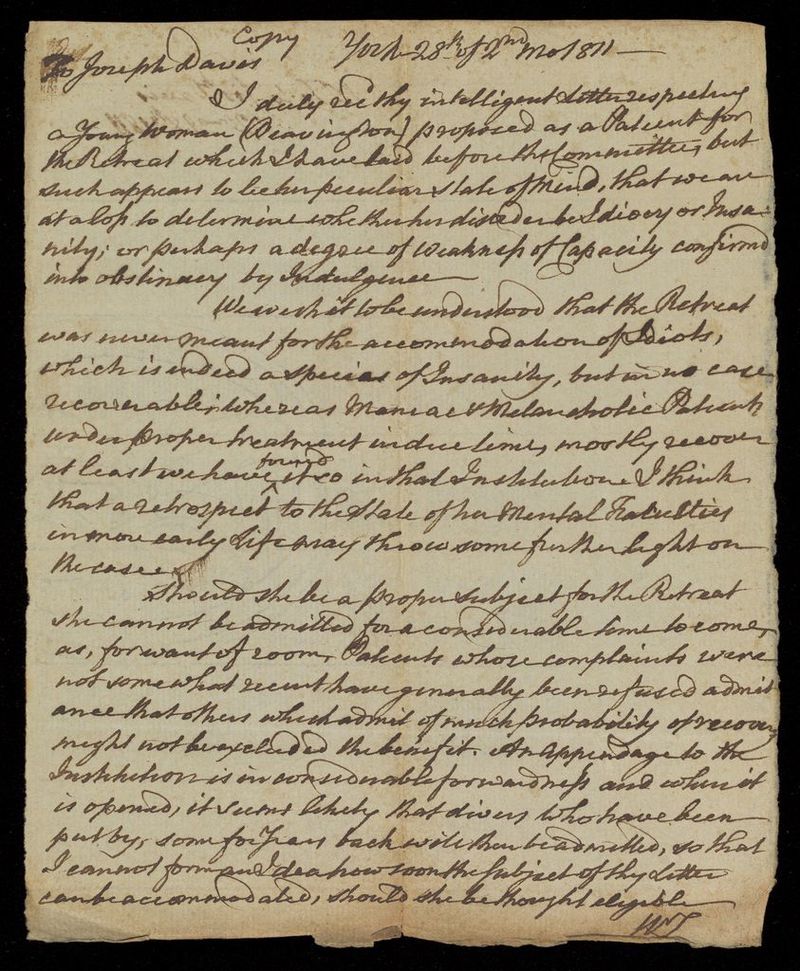 Copy York 28th of 2nd mo 1811 —
To Joseph Davis
I duly recd thy intelligent Letter respecting
a Young Woman (Deavington) proposed as a Patient for
the Retreat which I have laid before the Committee, but
such appears to be her peculiar state of Mind, that we are
at a loss to determine whether her disorder be Idiocy or Insa=
nity; or perhaps a degree of weakness of Capacity confirmed
into obstinacy by Indulgence —
We wish it to be understood that the Retreat
was never meant for the accommodation of Idiots,
which is indeed a species of Insanity, but in no case
recoverable; whereas Maniac & Melancholic Patients
under proper treatment in due time, mostly recover
at least we have found it so in that Institution. I think
that a retrospect to the State of her Mental Faculties
in more early Life may throw some further light on
the case.
Should she be a proper subject for the Retreat
she cannot be admitted for a considerable time to come,
as, for want of room, Patients whose complaints were
not somewhat recent have generally been refused admit
ance that others which admit of much probability of recovery
might not be excluded the benefit. An Appendage to the
Institution is in considerable forwardness and when it
is opened, it seems likely that divers who have been
put by, some for Years back will then be admitted, so that
I cannot form an Idea how soon the subject of thy Letter
can be accommodated, should she be thought eligible
WT